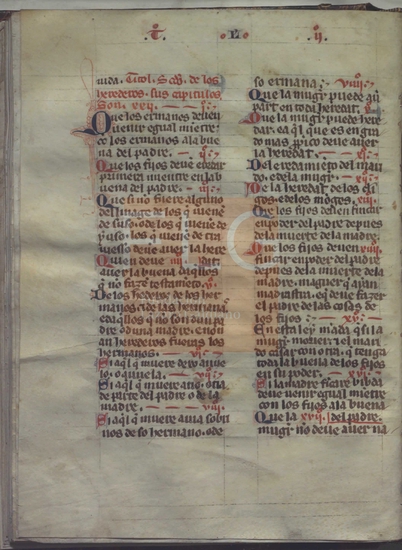 T L II
nida. Titol. S. es de los
herederos. sus capitulos
son. XXII.
Que los ermanos deuen
uenir egual mientre
con los ermanos a la bue
na del padre.
Que los fijos deue eredar
primera mientre en la
buena del padre. III.
Que si no fuere alguno
del linage de los que uene
de suso. o de los que uene de
yuso. los que uene de tra
uiesso deue auer la here
Quen deue
auer la buena daqllos
que no faze testamento. V.
De los herederos de los her
manos e de las hermanas
e daqllos que no son dun pa
dre o duna madre. e no on
an herederos fueras los
hermanos. VI.
Si aqel muere dexa auue
lo. o auuela.
Si aqel que muere a tia
de parte del padre o de la
madre. VIII.
Si aqel que muere a una sobri
nos de so hermano. o de
so ermana. VIIII.
Que la mugier puede auer
part en toda heredat. X.
Que la mugier puede here
dar. ea qel que es en gra
do mas propico deue auer
la heredat. XI.
Del eredamiento del mari
do. e de la mugier. XII.
De la heredat de los clerigos
. e de los monges. XIII.
Que los fijos deuen fincar
en poder del padre depues
de la muerte de la madre.
Que los fijos deuen XIIII.
fincar en poder del padre
depues de la muerte de la
madre. maguer que ayan
madrastra. e que deue fazer
el padre de las cosas de
los fijos. XV.
En esta ley mada que si la
mugier moriere. el mari
do casar con otra. que tenga
toda la buena de los fijos
en su poder. XVI.
Si la madre fincare bibda
deue uenir egual mietre
con los fijos a la buena
Que la XVII. del padre.
mugier no deue auer na